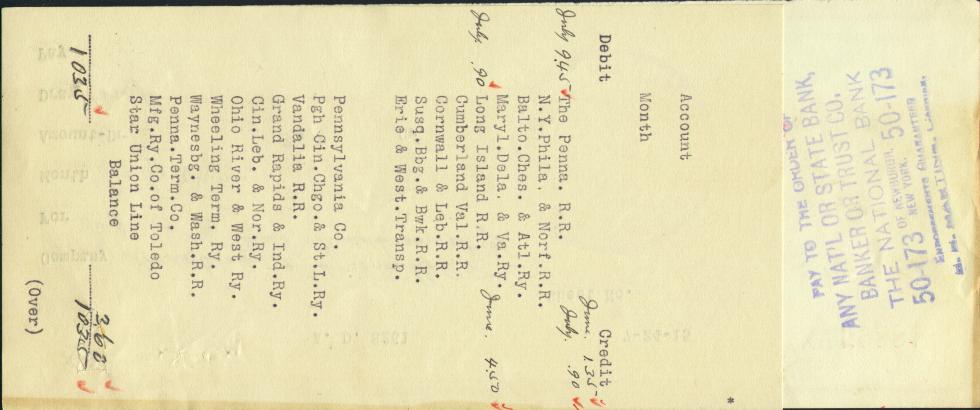 Account
Month
Debit Credit
June. 1.35
July 9.45 The Penna. R.R. July. .90
N.Y.Phila. & Norf.R.R.
Balto.Ches. & Atl.Ry.
Maryl.Dela. & Va.Ry. June. 4.50
July. .90 Long Island R.R.
Cumberland Val.R.R.
Cornwall & Leb.R.R.
Susq.Bbg.& Bwk.R.R.
Erie & West.Transp.
Pennsylvania Co.
Pgh Cin.Chgo.& St.L.Ry.
Vandalia R.R.
Grand Rapids & Ind.Ry.
Cin.Leb. & Nor.Ry.
Ohio River & West Ry.
Wheeling Term. Ry.
Waynesbg. & Wash.R.R.
Penna.Term.Co.
Mfg.Ry.Co.of Toledo
Star Union Line
Balance 3.60
10 35 10 35
(Over)
PAY TO THE ORDER OF
ANY NAT'L OR STATE BANK,
BANKER OR TRUST CO.
THE NATIONAL BANK
OF NEWBURGH, 50-173
NEW YORK.
50-173
ENDORSEMENTS GUARANTEED